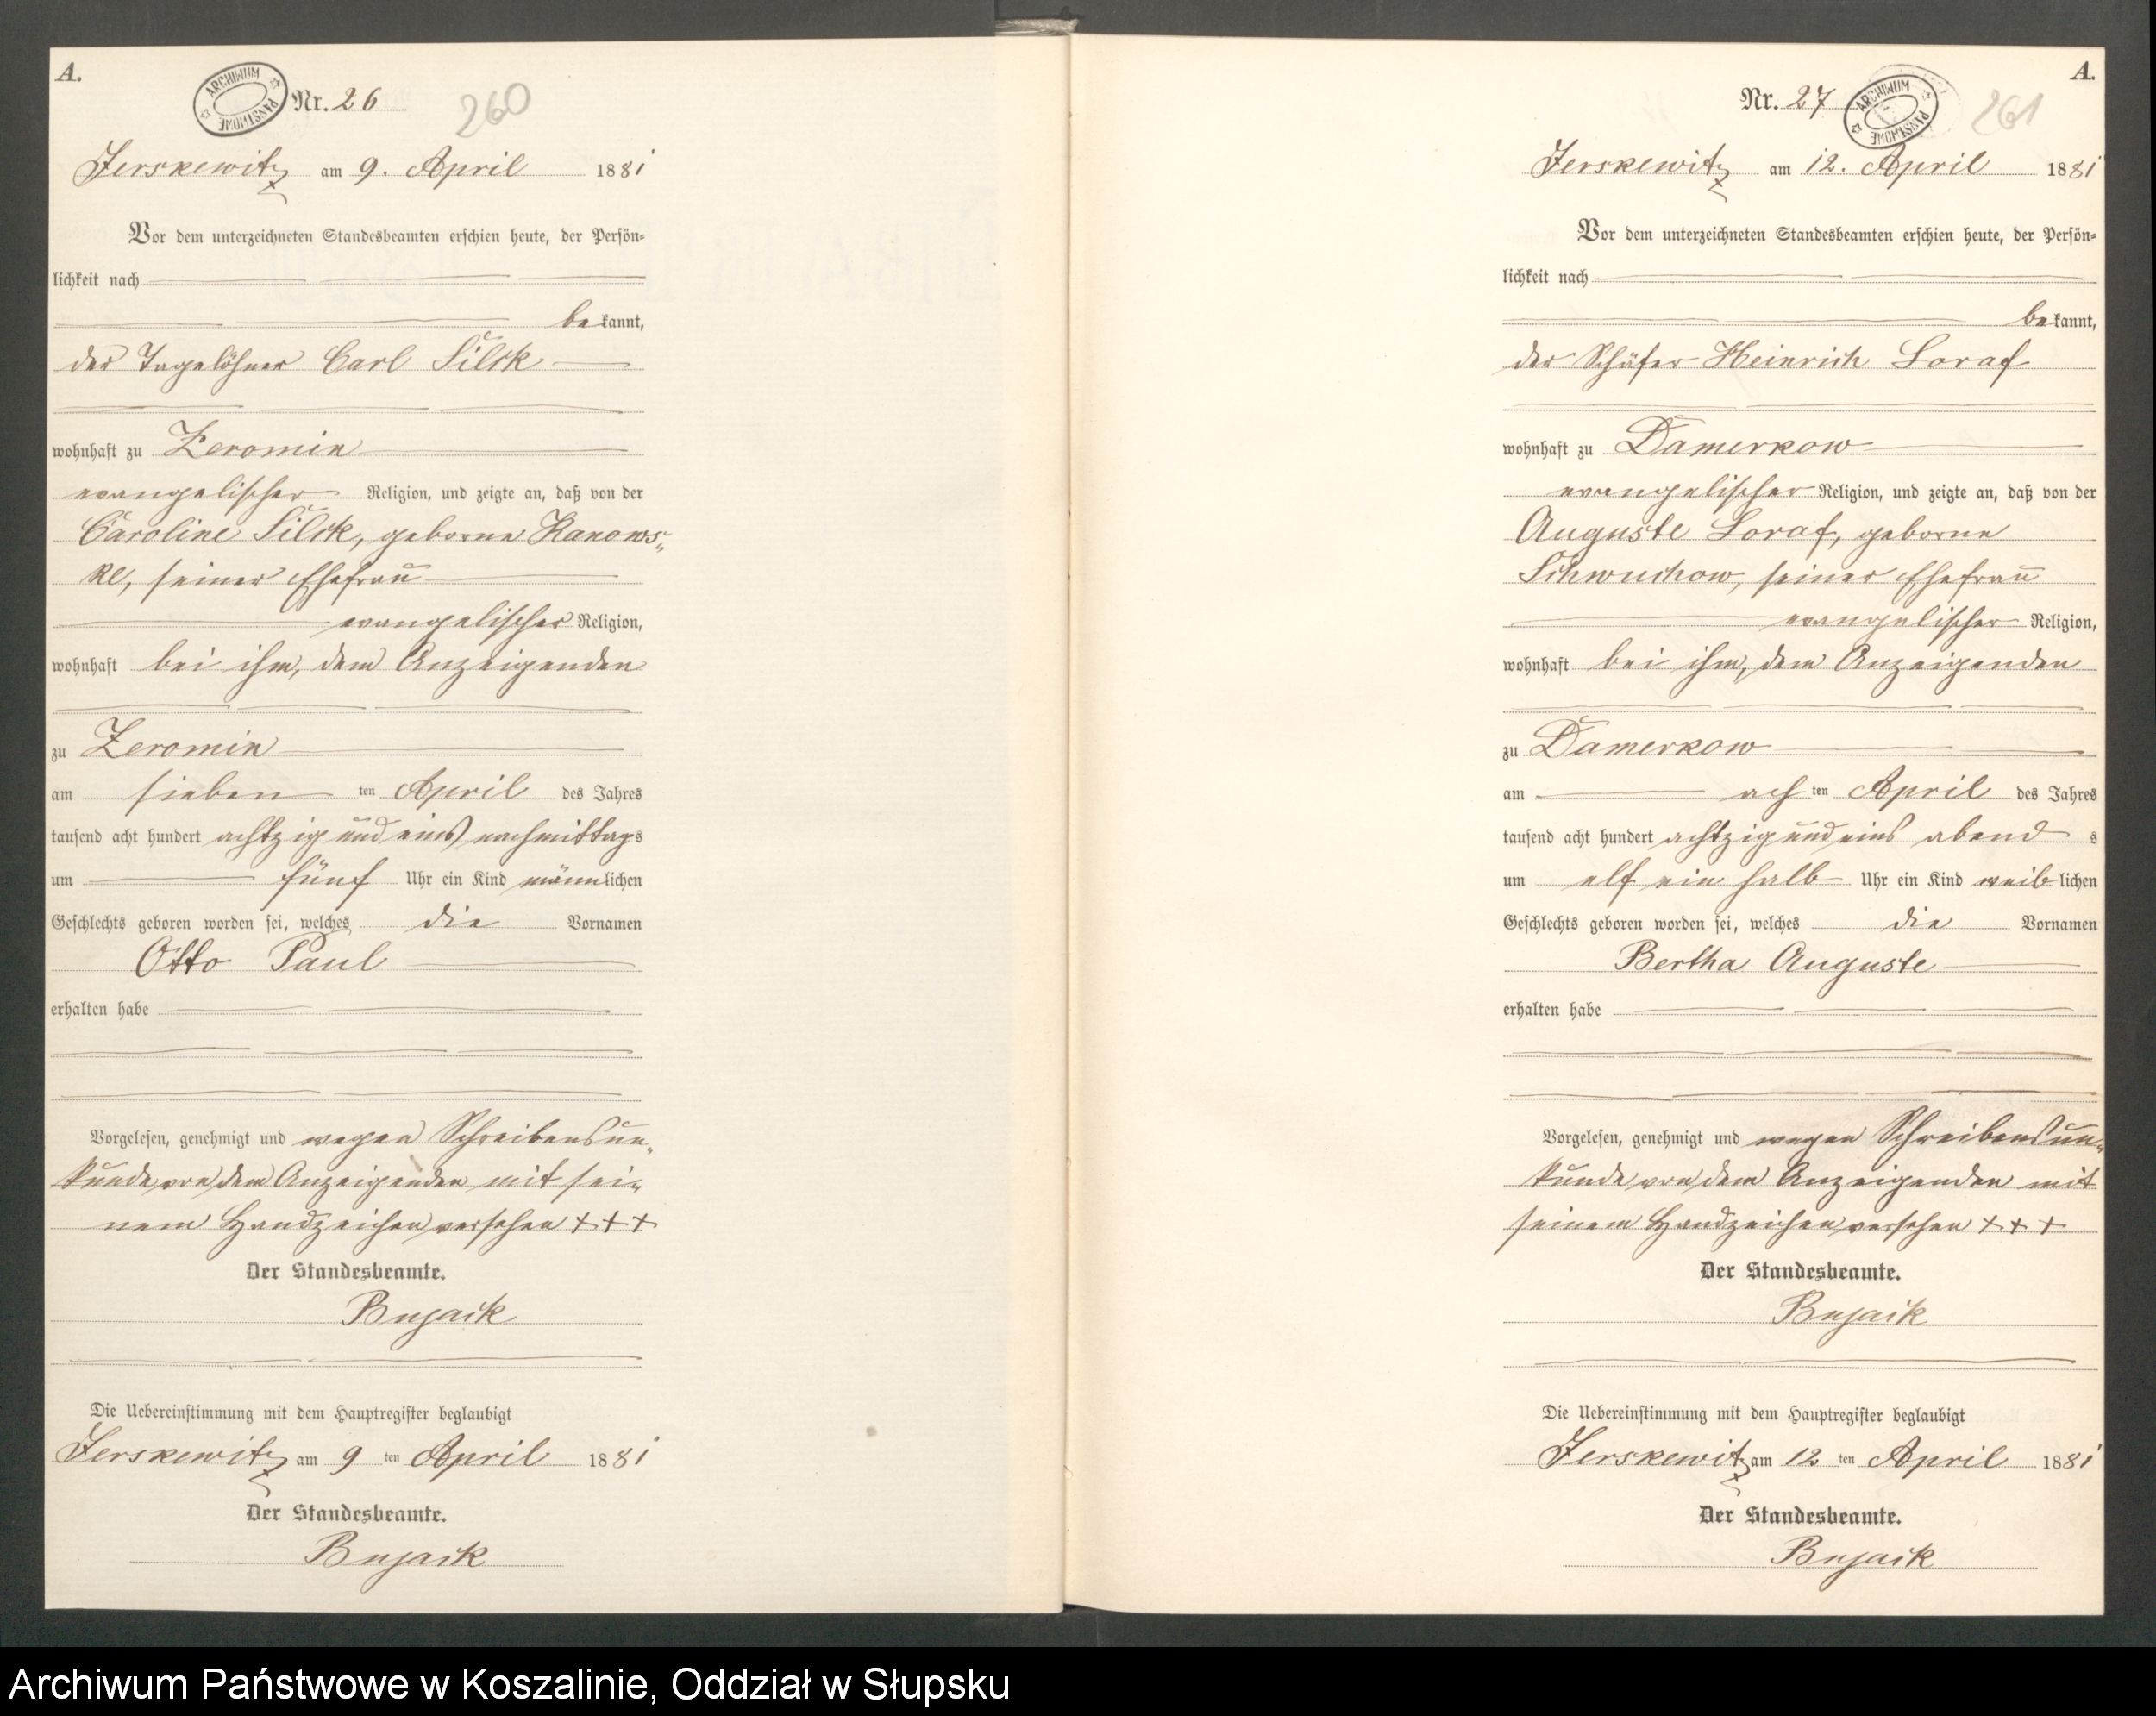 A.
ARCHIWUM PAŃSTWOWE
Nr. 26
260
Jerskewitz am 9. April 1881
Vor dem unterzeichneten Standesbeamten erschien heute, der Persön-
lichkeit nach
bekannt,
der Tagelöhner Carl Silck
wohnhaft zu Zeromin
evangelischer Religion, und zeigte an, daß von der
Caroline Silck, geborne Kanows-
ke, seiner Ehefrau
evangelischer Religion,
wohnhaft bei ihm, dem Anzeigenden
zu Zeromin
am sieben ten April des Jahres
tausend acht hundert achtzig und eins nachmittags
um fünf Uhr ein Kind männlichen
Geschlechts geboren worden sei, welches die Vornamen
Otto Paul
erhalten habe
Vorgelesen, genehmigt und wegen Schreibensun-
kunde von dem Anzeigenden mit sei-
nem Handzeichen versehen +++
Der Standesbeamte.
Bujack
Die Uebereinstimmung mit dem Hauptregister beglaubigt
Jerskewitz am 9 ten April 1881
Der Standesbeamte.
Bujack
A.
Nr. 27
ARCHIWUM PAŃSTWOWE
261
Jerskewitz am 12. April 1881
Vor dem unterzeichneten Standesbeamten erschien heute, der Persön-
lichkeit nach
bekannt,
der Schäfer Heinrich Loraf
wohnhaft zu Damerkow
evangelischer Religion, und zeigte an, daß von der
Auguste Loraf, geborne
Schwuchow, seiner Ehefrau
evangelischer Religion,
wohnhaft bei ihm, dem Anzeigenden
zu Damerkow
am ach ten April des Jahres
tausend acht hundert achtzig und eins abend s
um elf ein halb Uhr ein Kind weiblichen
Geschlechts geboren worden sei, welches die Vornamen
Bertha Auguste
erhalten habe
Vorgelesen, genehmigt und wegen Schreibensun-
kunde von dem Anzeigenden mit
seinem Handzeichen versehen +++
Der Standesbeamte.
Bujack
Die Uebereinstimmung mit dem Hauptregister beglaubigt
Jerskewitz am 12 ten April 1881
Der Standesbeamte.
Bujack
Archiwum Państwowe w Koszalinie, Oddział w Słupsku